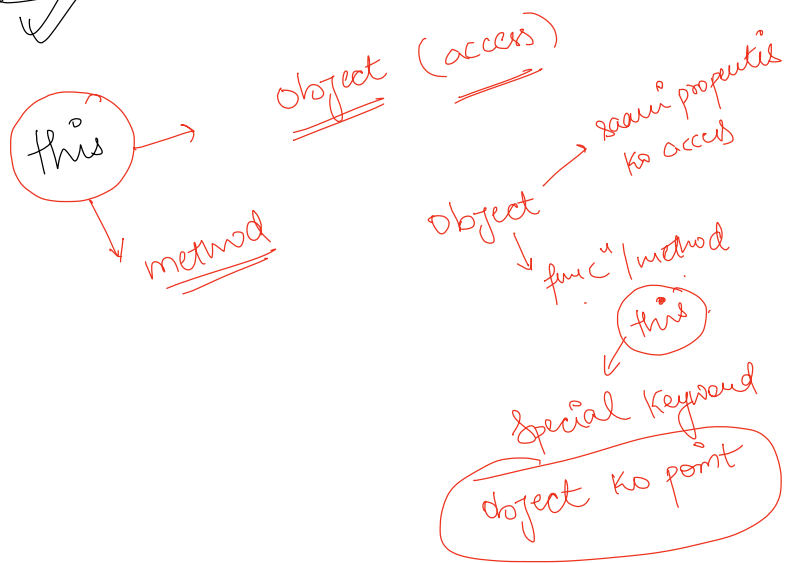 this
object (access)
method
object
saari properties
ko access
funcⁿ / method
this
Special Keyword
object ko point